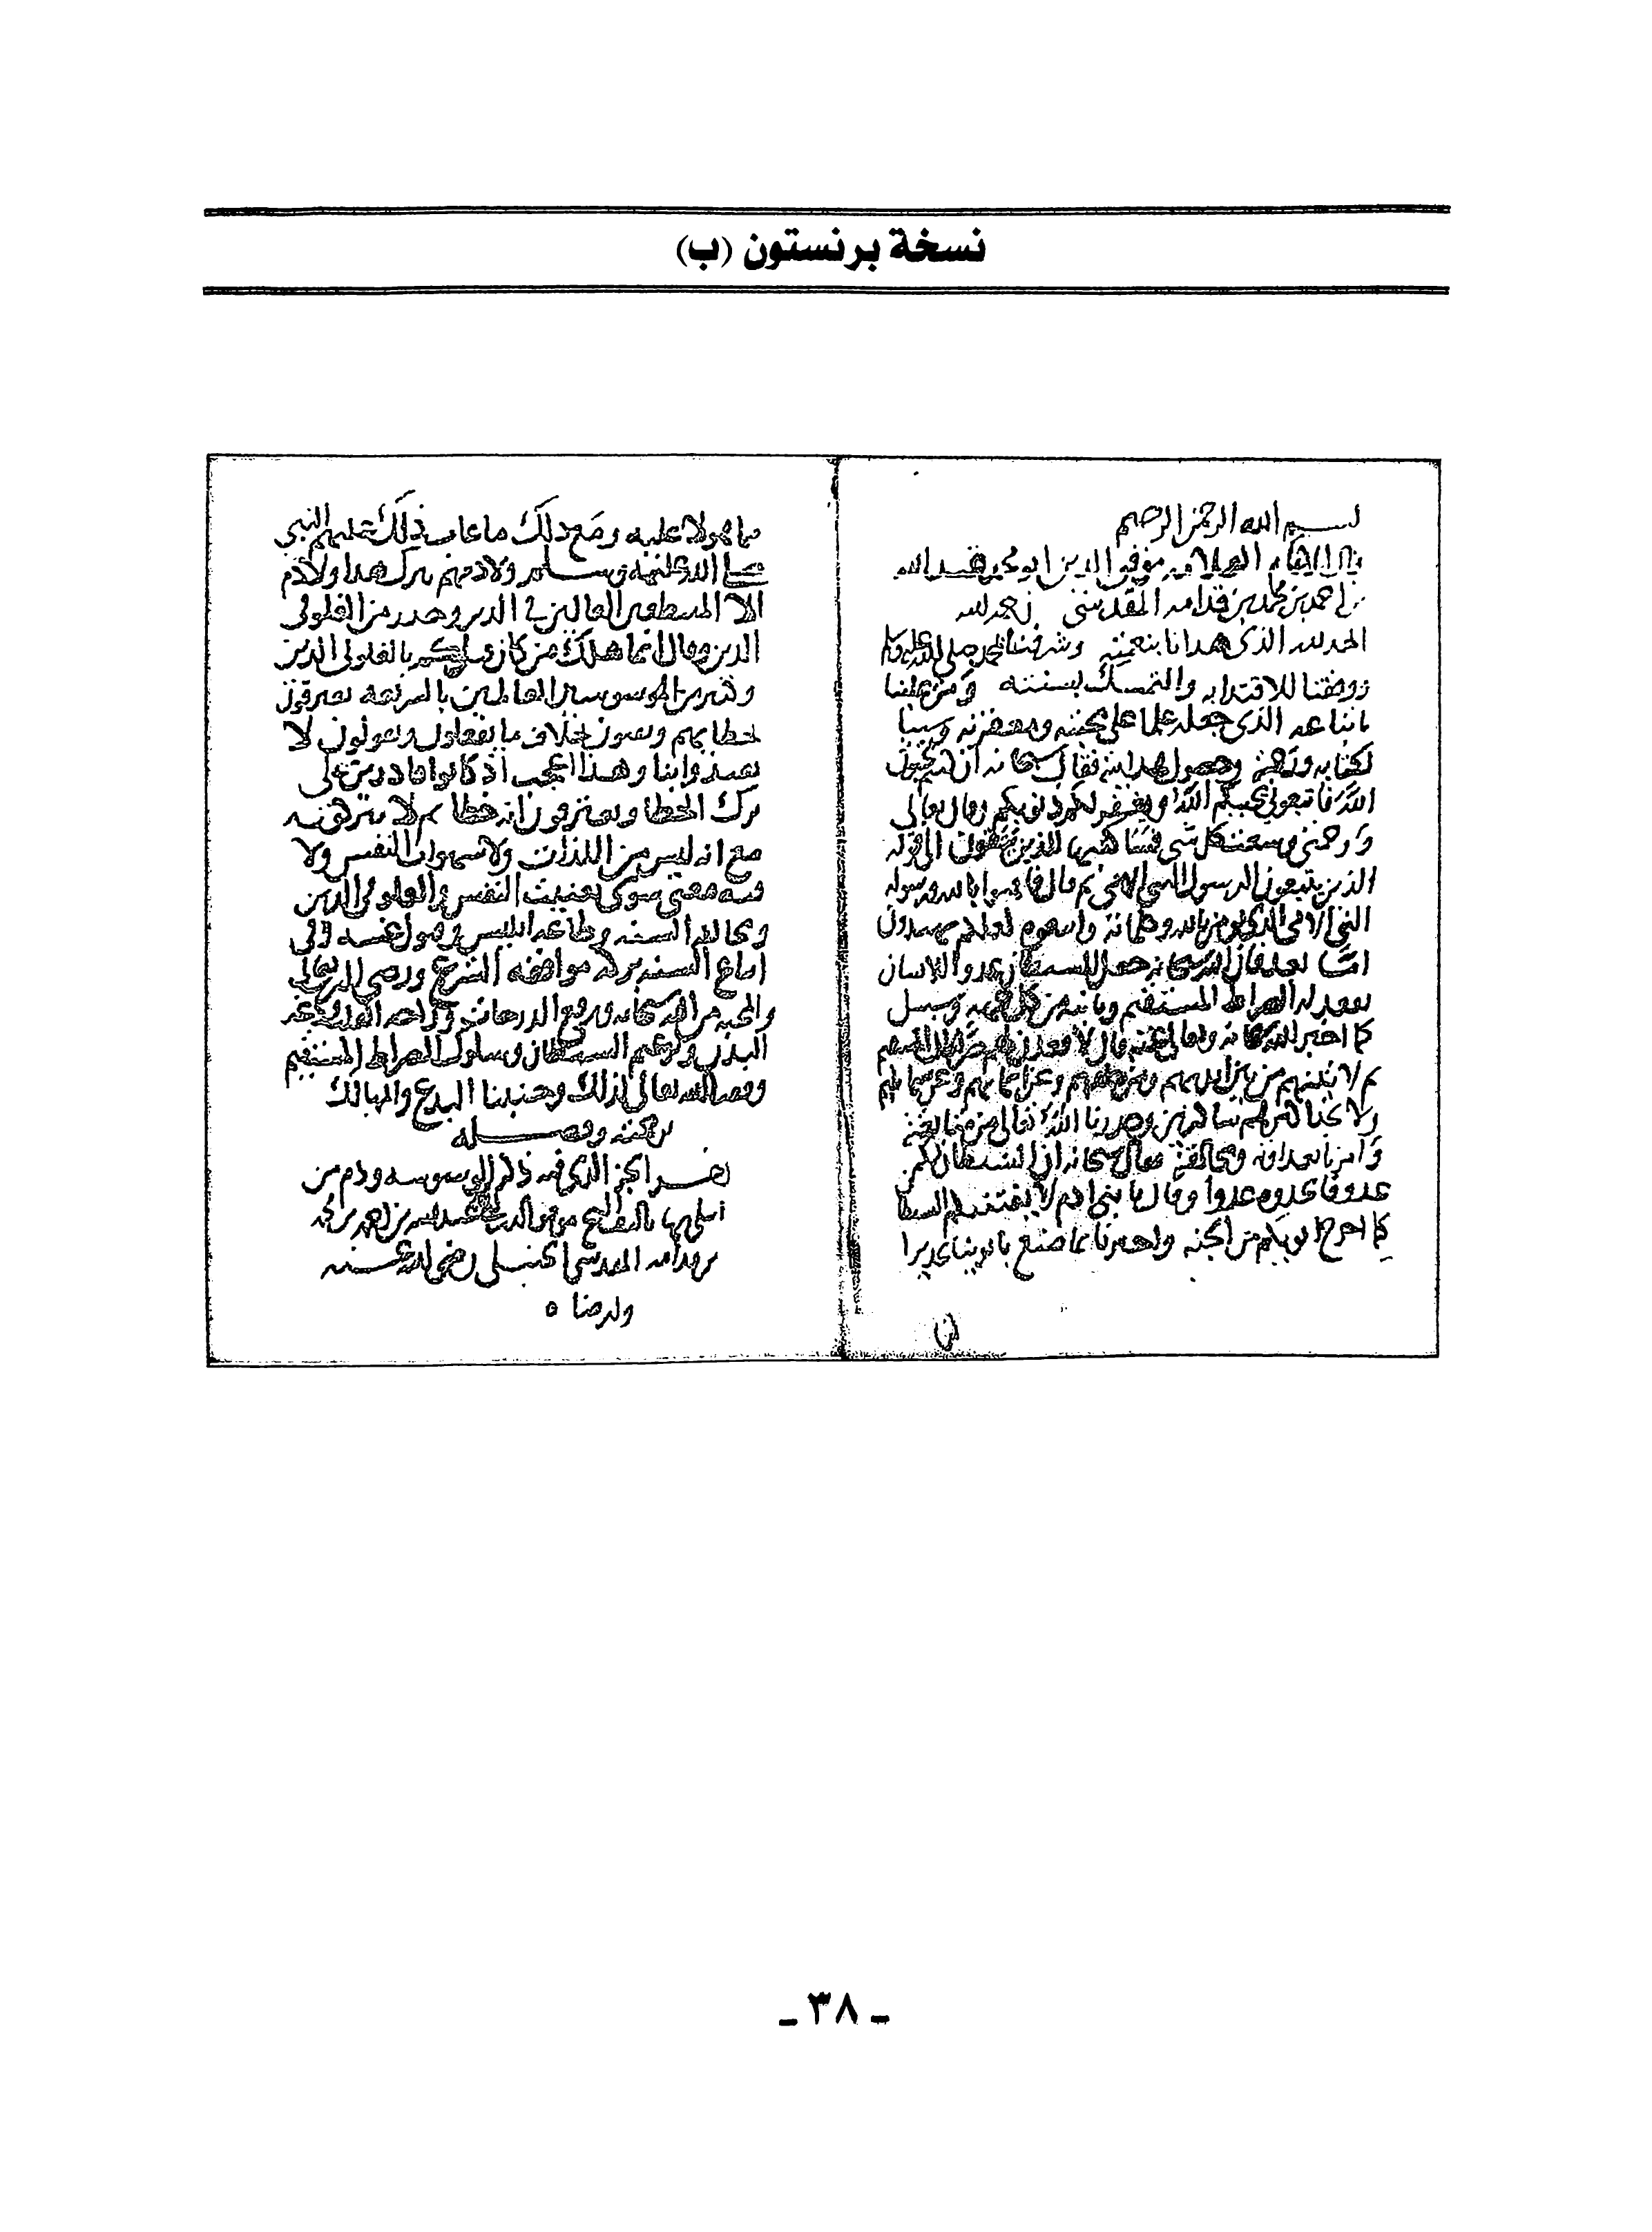 نسخة برنستون (ب)
بسم الله الرحمن الرحيم
موفق الدين ابو محمد عبد الله
بن احمد بن محمد بن قدامه المقدسي رحمه الله
الحمد لله الذي هدانا بنعمته وشرفنا بمحمد صلى الله عليه وسلم
ووفقنا للاقتدا به والتمسك بسنته ومن علينا
باتباعه الذي جعله علما على محبته ومغفرته وسببا
لكتابه رحمته وحصول هدايته فقال سبحانه ان كنتم تحبون
الله فاتبعوني يحببكم الله ويغفر لكم ذنوبكم وقال تعالى
ورحمتي وسعت كل شي فساكتبها للذين يتقون الى قوله
الذين يتبعون الرسول النبي الامي ثم قال فامنوا بالله ورسوله
النبي الامي الذي يومن بالله وكلماته واتبعوه لعلكم تهتدون
اما بعد فان الله سبحانه جعل الشيطان عدوا للانسان
يقعد له الصراط المستقيم وياتيه من كل جهة وسبيل
كما اخبر الله سبحانه وتعالى عنه قال لاقعدن لهم صراطك المستقيم
ثم لاتينهم من بين ايديهم ومن خلفهم وعن ايمانهم وعن شمايلهم
ولا تجد اكثرهم شاكرين وحذرنا الله تعالى من متابعته
وامرنا بمعاداته ومخالفته فقال سبحانه ان الشيطان لكم
عدو فاتخذوه عدوا وقال يا بني ادم لا يفتننكم الشيطا
كما اخرج ابويكم من الجنه واخبرنا بما صنع بابوينا تحذيرا
ما هولا عليه ومع ذلك ما عاب ذلك عليهم النبي
صلى الله عليه وسلم ولا ذمهم بترك هذا ولا ذم
الا المتنطعين الغالين في الدين وحذر من الغلو في
الدين وقال انما هلك من كان قبلكم بالغلو في الدين
وكثير من الموسوسين العالمين بالشريعه يعترفون
بخطايهم ويفتون بخلاف ما يفعلون ويقولون لا
تقتدوا بنا وهذا عجب اذ كانوا قادرين على
ترك الخطا ويعترفون انه خطا ثم لا يتركونه
مع انه ليس من اللذات ولا شهوات النفس ولا
فيه معنى سوى تعذيب النفس والغلو في الدين
ومخالفة السنه وطاعه ابليس وقبول غشه وفي
اتباع السنه بركه موافقه الشرع ورضى الرب تعالى
والمحبه من الله سبحانه ورفع الدرجات وراحه القلب ودعه
البدن وترغيم الشيطان وسلوك الصراط المستقيم
وفقنا الله تعالى لذلك وجنبنا البدع والمهالك
برحمته وفضله
اخر الجز الذي فيه ذكر الوسوسه وذم من
ابتلي بها تاليف الشيخ موفق الدين عبد الله بن احمد بن محمد
بن قدامه المقدسي الحنبلي رضي الله عنه
وارضاه
- ٣٨ -